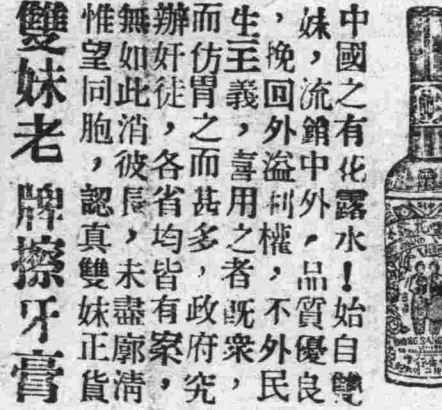 中國之有花露水！始自雙
妹，流銷中外，品質優良
，挽回外溢利權，不外民
生主義，喜用之者既衆，
而仿冒之而甚多，政府究
辦奸徒，各省均皆有案，
無如此消彼長，未盡廓清
惟望同胞，認真雙妹正貨
雙妹老牌擦牙膏